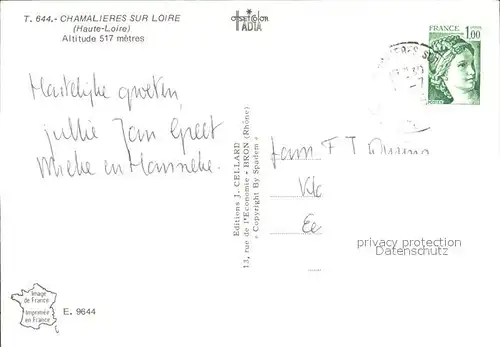 T. 644.- CHAMALIERES SUR LOIRE
(Haute-Loire)
Altitude 517 mètres
offset color
IADIA
FRANCE
1,00
POSTES
Hartelijke groeten,
jullie Jan Greet
Mieke en Hanneke.
Fam F T
Editions J. CELLARD
13, rue de l'Economie - BRON (Rhône)
« Copyright By Spadem »
privacy protection
by Veikkos.com
Image
de France
Imprimée
en France
E. 9644